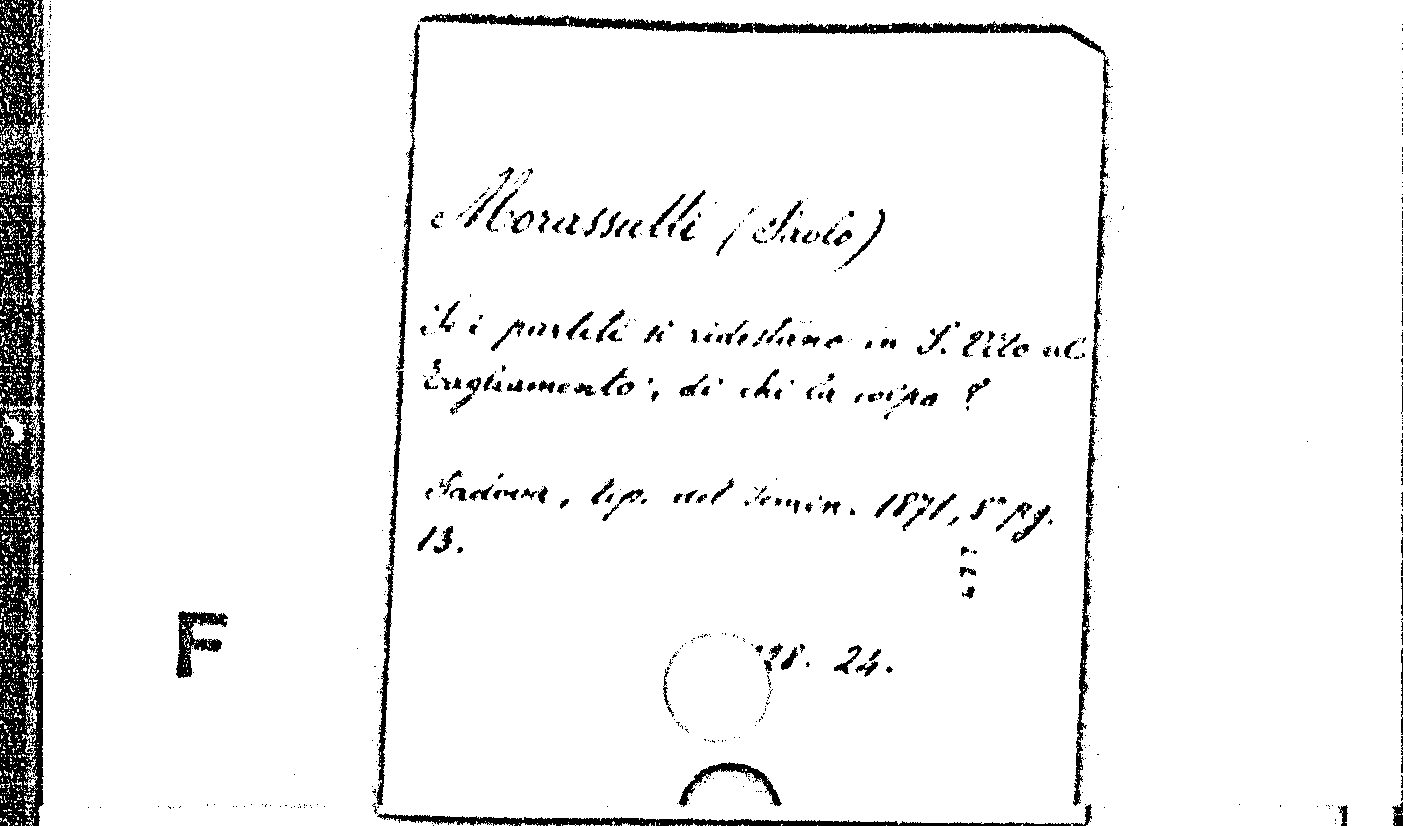 Morassutti (Paolo)
Se i partiti si ridestano in S. Vito al
Tagliamento, di chi la colpa?
Padova, tip. del Semin. 1871, 8° pg.
13.
28. 24.
F